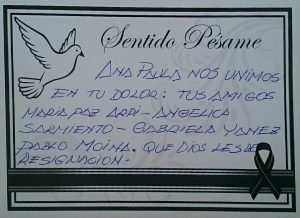 Sentido Pésame
ANA PAULA NOS UNIMOS
EN TU DOLOR: TUS AMIGOS
MARIA PAZ ARPI - ANGELICA
SARMIENTO - GABRIELA YANEZ
PABLO MOINA. QUE DIOS LES DE
RESIGNACION -